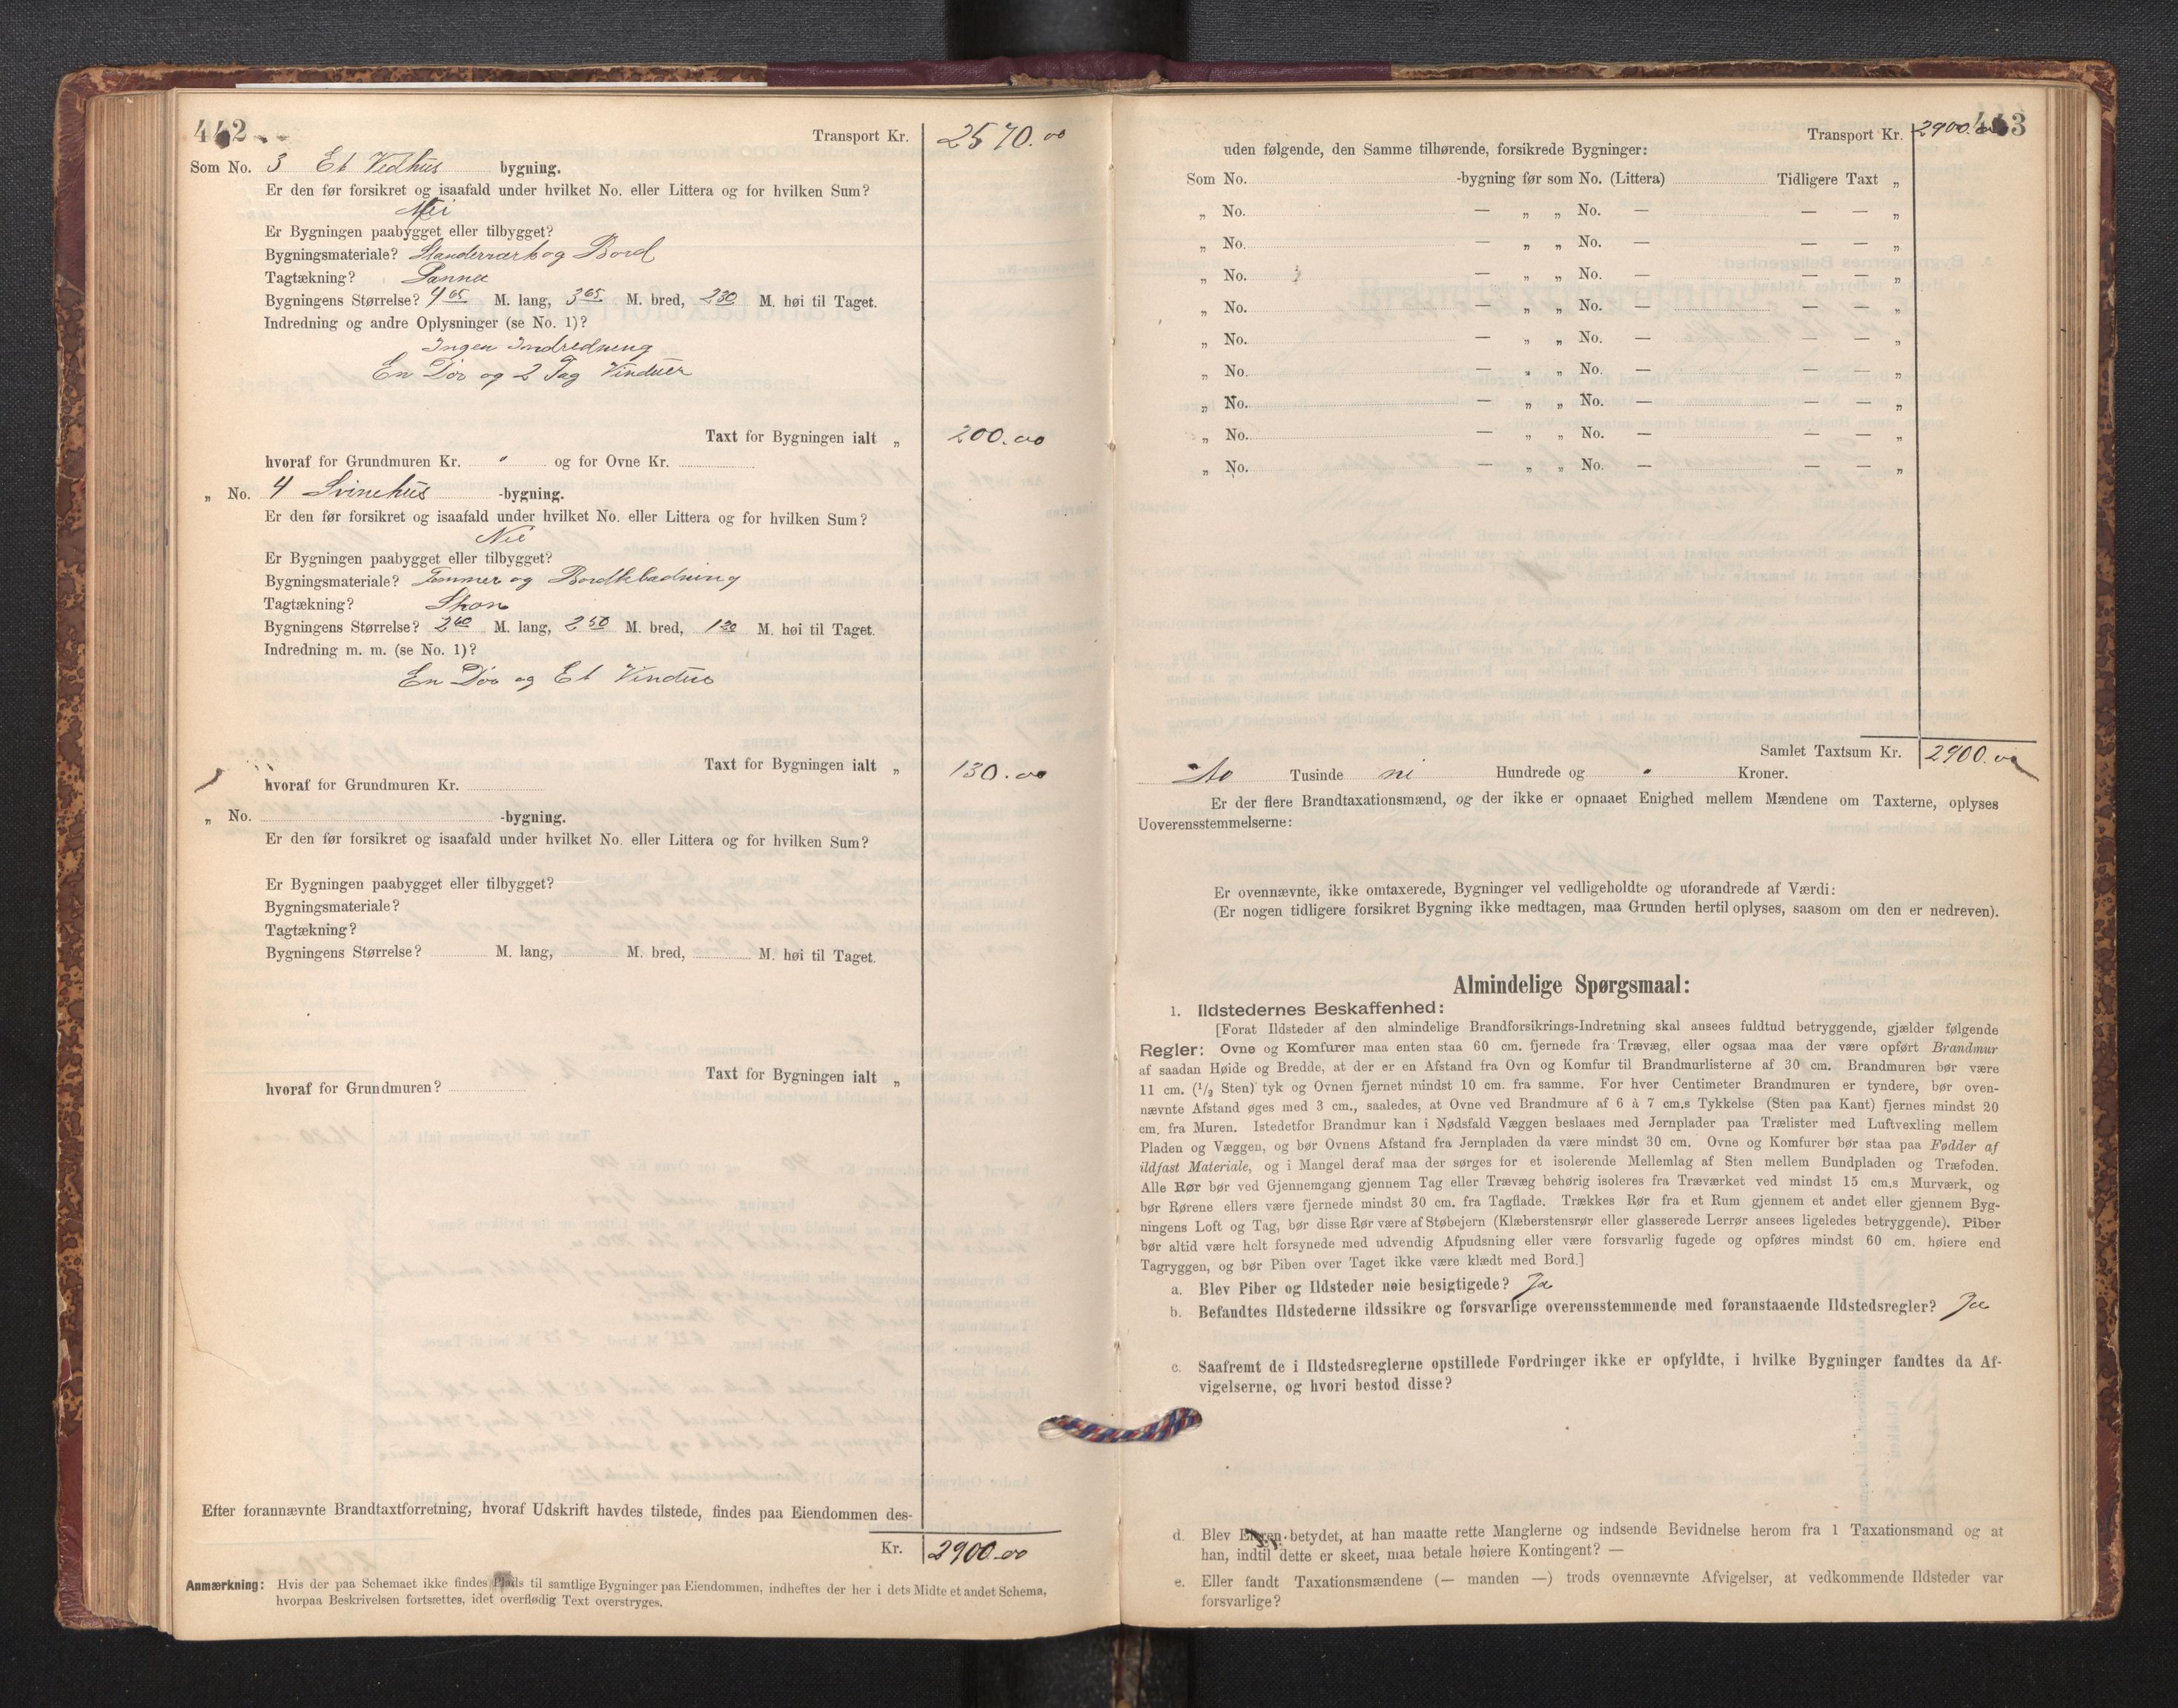 442
Transport Kr. 2570.00
Som No. 3 Et Vedhus bygning.
Er den før forsikret og isaafald under hvilket No. eller Littera og for hvilken Sum?
Nei
Er Bygningen paabygget eller tilbygget?
Bygningsmateriale? Standerværk og Bord
Tagtækning? Panner
Bygningens Størrelse? 4 65 M. lang, 3 65 M. bred, 2 30 M. høi til Taget.
Indredning og andre Oplysninger (se No. 1)?
Ingen Indredning
En Dør og 2 Tag Vinduer
Taxt for Bygningen ialt „ 200.00
hvoraf for Grundmuren Kr. " og for Ovne Kr.
„ No. 4 Svinehus -bygning.
Er den før forsikret og isaafald under hvilket No. eller Littera og for hvilken Sum?
Nei
Er Bygningen paabygget eller tilbygget?
Bygningsmateriale? Tømmer og Bordklædning
Tagtækning? Spon
Bygningens Størrelse? M. lang, 2 50 M. bred, M. høi til Taget.
Indredning m. m. (se No. 1)?
En Dør og Et Vindue
Taxt for Bygningen ialt „ 130.00
hvoraf for Grundmuren Kr.
„ No. -bygning.
Er den før forsikret og isaafald under hvilket No. eller Littera og for hvilken Sum?
Er Bygningen paabygget eller tilbygget?
Bygningsmateriale?
Tagtækning?
Bygningens Størrelse? M. lang, M. bred, M. høi til Taget.
Taxt for Bygningen ialt „
hvoraf for Grundmuren?
Efter forannævnte Brandtaxtforretning, hvoraf Udskrift havdes tilstede, findes paa Eiendommen des-
Kr. 2900.00
Anmærkning: Hvis der paa Schemaet ikke findes Plads til samtlige Bygninger paa Eiendommen, indheftes der her i dets Midte et andet Schema,
hvorpaa Beskrivelsen fortsættes, idet overflødig Text overstryges.
443
Transport Kr. 2900.00
uden følgende, den Samme tilhørende, forsikrede Bygninger:
Som No. -bygning før som No. (Littera) Tidligere Taxt „
„ No. — „ „ No. — — — „
„ No. — „ „ No. — — — „
„ No. — „ „ No. — — — „
„ No. — „ „ No. — — — „
„ No. — „ „ No. — — — „
„ No. — „ „ No. — — — „
„ No. — „ „ No. — — — „
„ No. — „ „ No. — — — „
„ No. — „ „ No. — — — „
Samlet Taxtsum Kr. 2900.00
To Tusinde ni Hundrede og " Kroner.
Er der flere Brandtaxationsmænd, og der ikke er opnaaet Enighed mellem Mændene om Taxterne, oplyses
Uoverensstemmelserne:
Er ovennævnte, ikke omtaxerede, Bygninger vel vedligeholdte og uforandrede af Værdi:
(Er nogen tidligere forsikret Bygning ikke medtagen, maa Grunden hertil oplyses, saasom om den er nedreven).
Almindelige Spørgsmaal:
1. Ildstedernes Beskaffenhed:
[Forat Ildsteder af den almindelige Brandforsikrings-Indretning skal ansees fuldtud betryggende, gjælder følgende
Regler: Ovne og Komfurer maa enten staa 60 cm. fjernede fra Trævæg, eller ogsaa maa der være opført Brandmur
af saadan Høide og Bredde, at der er en Afstand fra Ovn og Komfur til Brandmurlisterne af 30 cm. Brandmuren bør være
11 cm. (1/2 Sten) tyk og Ovnen fjernet mindst 10 cm. fra samme. For hver Centimeter Brandmuren er tyndere, bør oven-
nævnte Afstand øges med 3 cm., saaledes, at Ovne ved Brandmure af 6 à 7 cm.s Tykkelse (Sten paa Kant) fjernes mindst 20
cm. fra Muren. Istedetfor Brandmur kan i Nødsfald Væggen beslaaes med Jernplader paa Trælister med Luftvexling mellem
Pladen og Væggen, og bør Ovnens Afstand fra Jernpladen da være mindst 30 cm. Ovne og Komfurer bør staa paa Fødder af
ildfast Materiale, og i Mangel deraf maa der sørges for et isolerende Mellemlag af Sten mellem Bundpladen og Træfoden.
Alle Rør bør ved Gjennemgang gjennem Tag eller Trævæg behørig isoleres fra Træværket ved mindst 15 cm.s Murværk, og
bør Rørene ellers være fjernede mindst 30 cm. fra Tagflade. Trækkes Rør fra et Rum gjennem et andet eller gjennem Byg-
ningens Loft og Tag, bør disse Rør være af Støbejern (Klæberstensrør eller glasserede Lerrør ansees ligeledes betryggende). Piber
bør altid være helt forsynede med udvendig Afpudsning eller være forsvarlig fugede og opføres mindst 60 cm. høiere end
Tagryggen, og bør Piben over Taget ikke være klædt med Bord.]
a. Blev Piber og Ildsteder nøie besigtigede? Ja
b. Befandtes Ildstederne ildssikre og forsvarlige overensstemmende med foranstaaende Ildstedsregler? Ja
c. Saafremt de i Ildstedsreglerne opstillede Fordringer ikke er opfyldte, i hvilke Bygninger fandtes da Af-
vigelserne, og hvori bestod disse?
d. Blev Eieren betydet, at han maatte rette Manglerne og indsende Bevidnelse herom fra 1 Taxationsmand og at
han, indtil dette er skeet, maa betale høiere Kontingent? —
e. Eller fandt Taxationsmændene (— manden —) trods ovennævnte Afvigelser, at vedkommende Ildsteder var
forsvarlige?